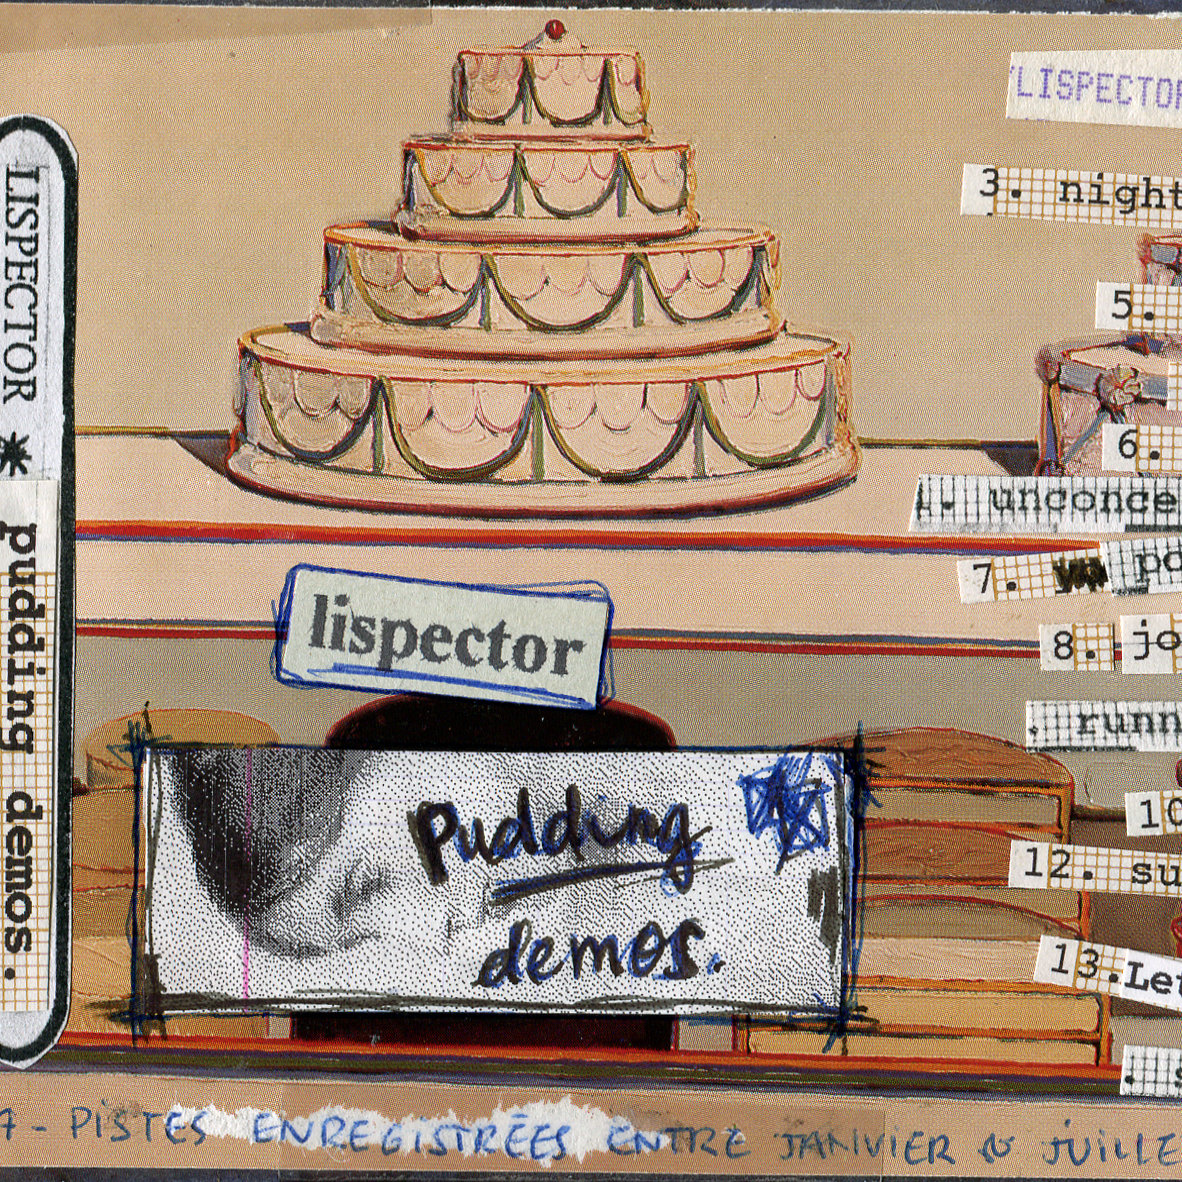 LISPECTOR * pudding demos.
LISPECTOR
3. night
5.
6.
. unconce
7. po
8. jo
. runn
10
12. su
13. Let
. s
lispector
Pudding
demos.
7 - PiSTES ENREGISTRÉES ENTRE JANVIER & JUILLE